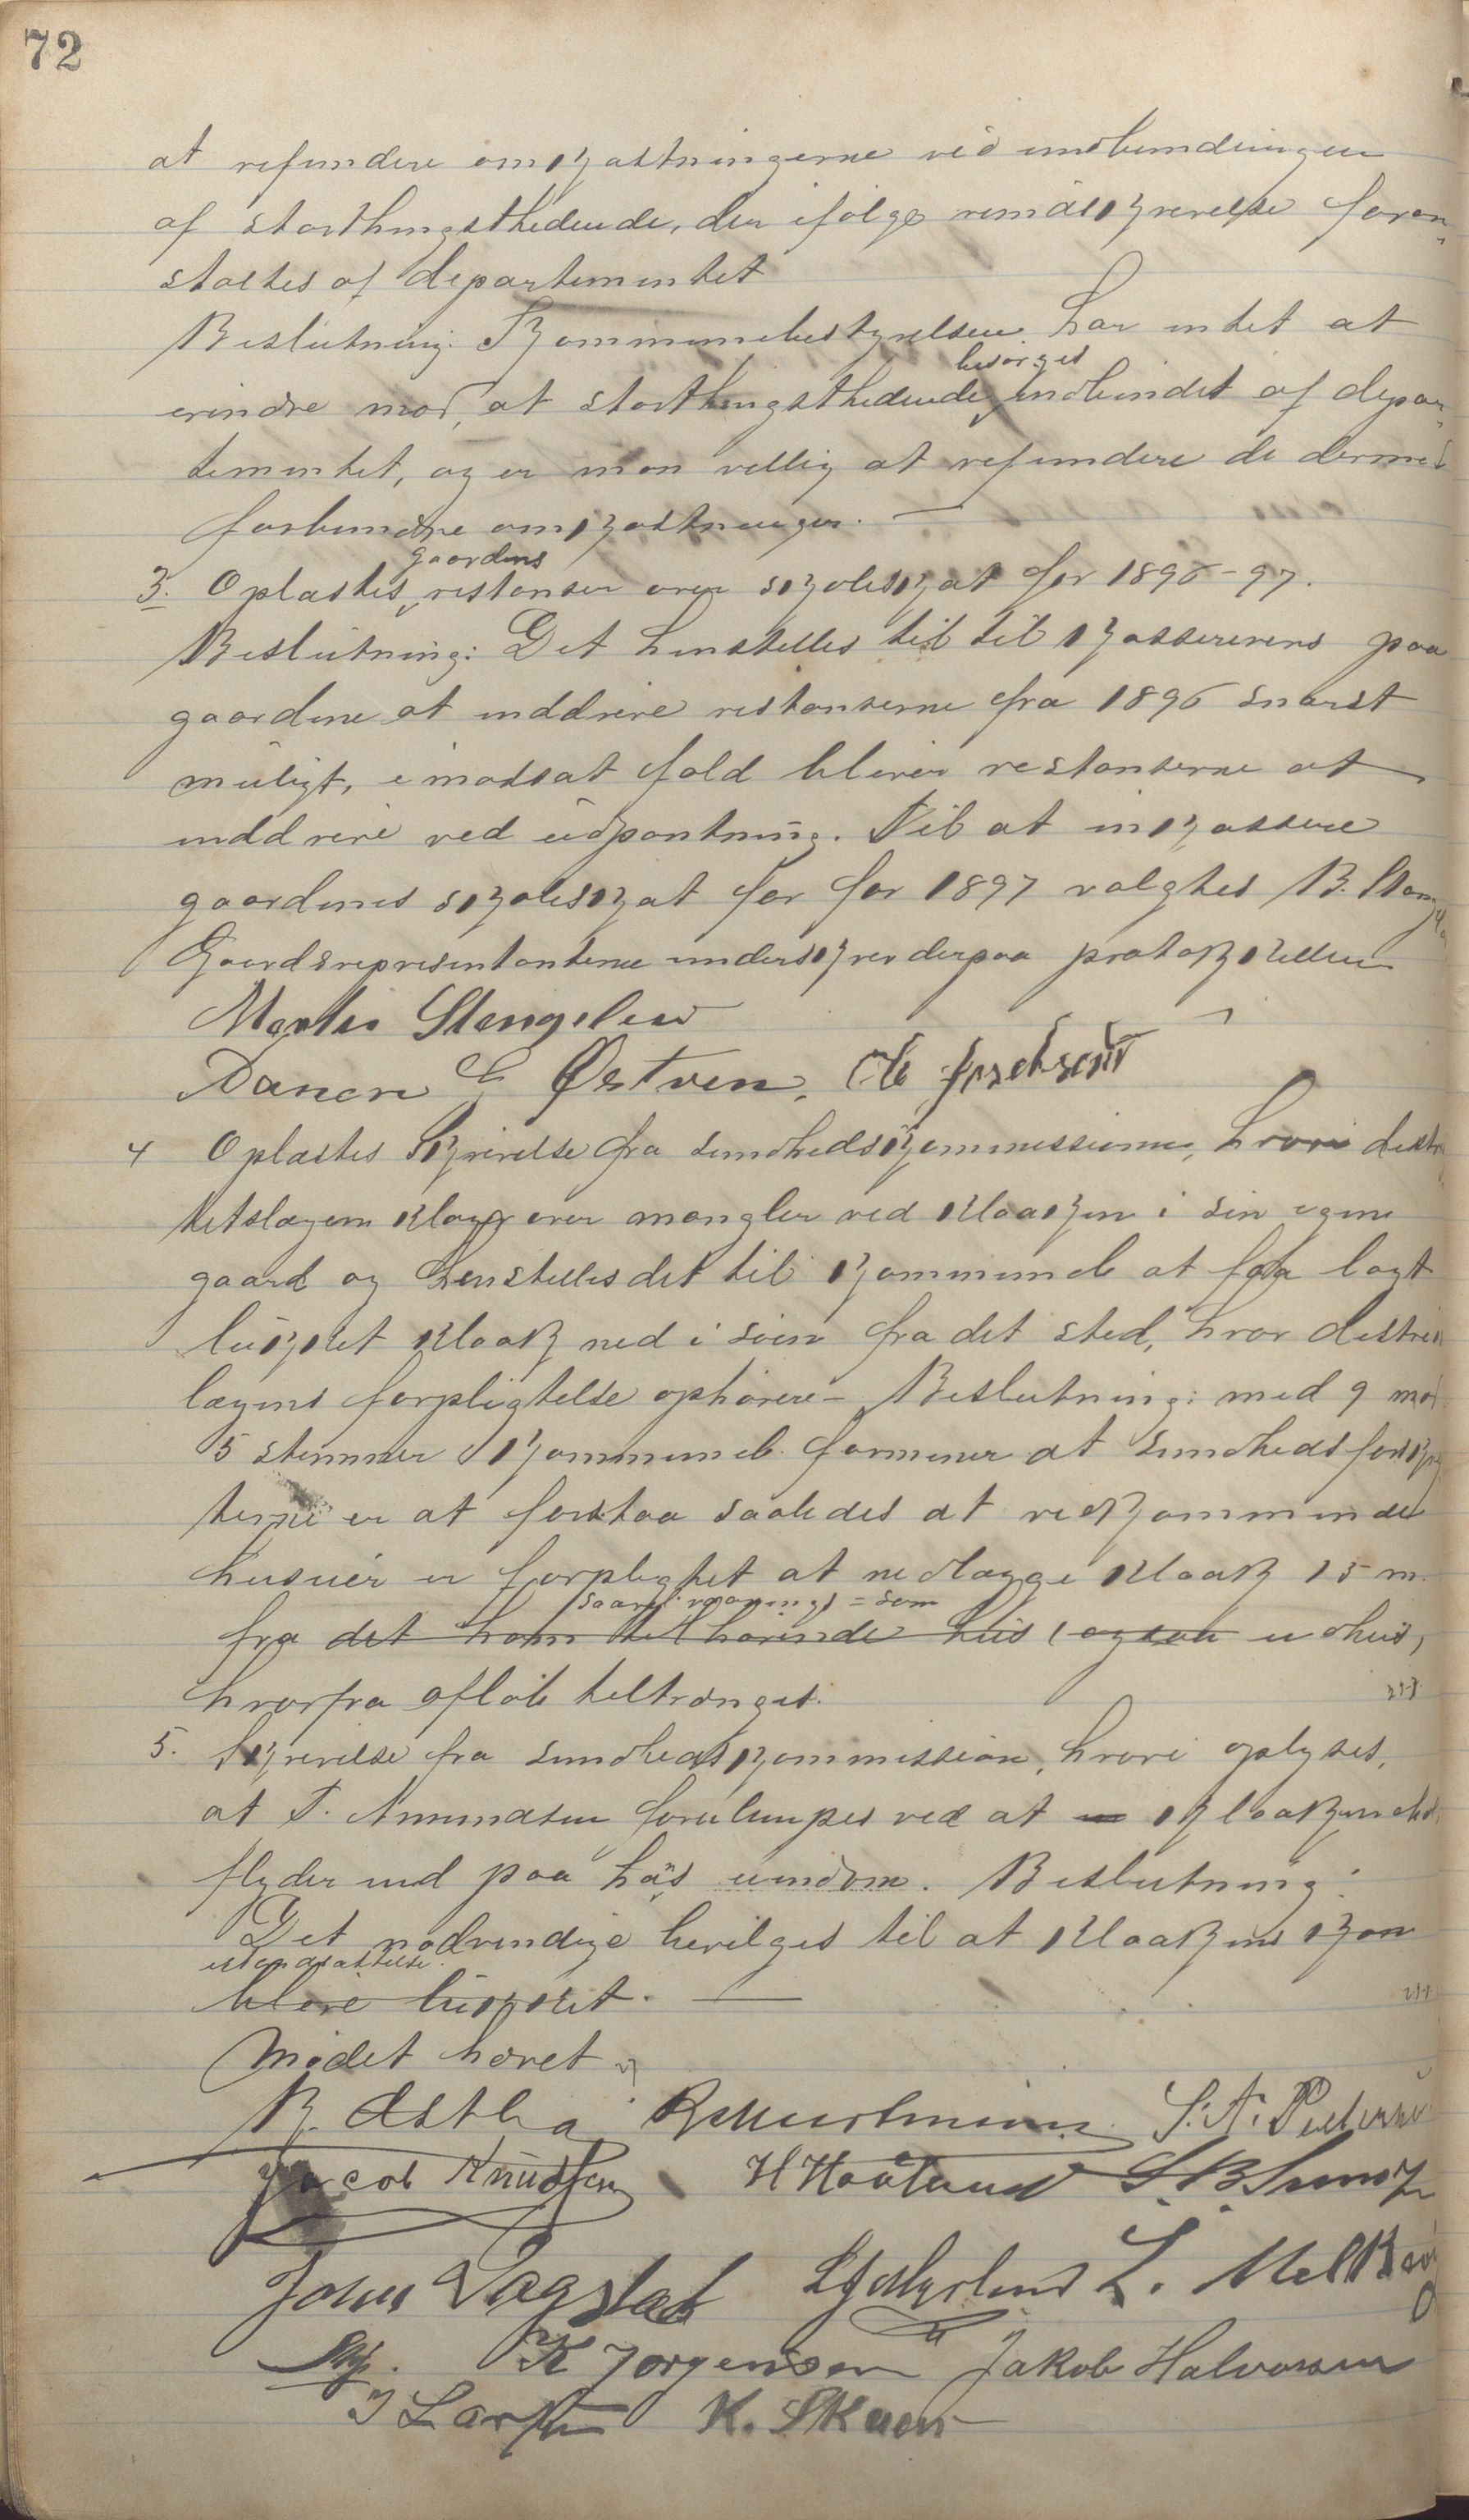 72
at refundere omkostningerne ved indbindingen
af storthingstidende, der ifölge rundskrivelse foran-
staltes af departementet
Beslutning: Kommunebestyrelsen har intet at
besörges
erindre mod, at storthingsthidende indbindet af depar-
tementet, og er man villig at refundere de dermed
forbundne omkostninger. —
gaardens
3. Oplæstes restanser over skoleskat for 1896-97.
Beslutning: Det henstilles til til kassererens paa
gaardene at inddrive restanserne fra 1896 snarest
muligt, i modsat fald bliver restanserne at
inddrive ved udpantning. Til at inkassere
gaardenes skoleskat for for 1897 valgtes B. Stang
Gaardsrepresentanterne underskrev derpaa protokollen
Martin Stengelsen
E Østven, Ole
4 Oplæstes Skrivelse fra sundhedskommissionen, hvori distri
ktslægen klager over mangler ved kloaken i sin egen
gaard og henstilles det til kommunen at faa lagt
lukket kloak ned i söen fra det sted, hvor distrikts
lægens forpligtelse ophörer – Beslutning: med 9 mod
5 stemmer Kommuneb. formener at sundhedsforskrif
terne er at forstaa saaledes at vedkommende
huseier er forpligtet at nedlægge kloak 15 m.
saavel vaanings = som
fra det ham tilhörende hus (ogsaa udhus,
hvorfra aflöb tiltrænges.
5. Skrivelse fra sundhedskommission, hvori oplyses,
at T. Ammundsen forulempes ved at kloakindhold
flyder ind paa hans eiendom. Beslutning:
Det nödvendige bevilges til at kloakens kan
istandsættelse.
blive lukket. —
Mödet hævet
B. Østbø S. A. Pedersen
Jacob Knudsen H Haaland
John Vagstad L. Melkevig
K Jorgensen Jakob Halvorsen
J Larsen K. Skaar